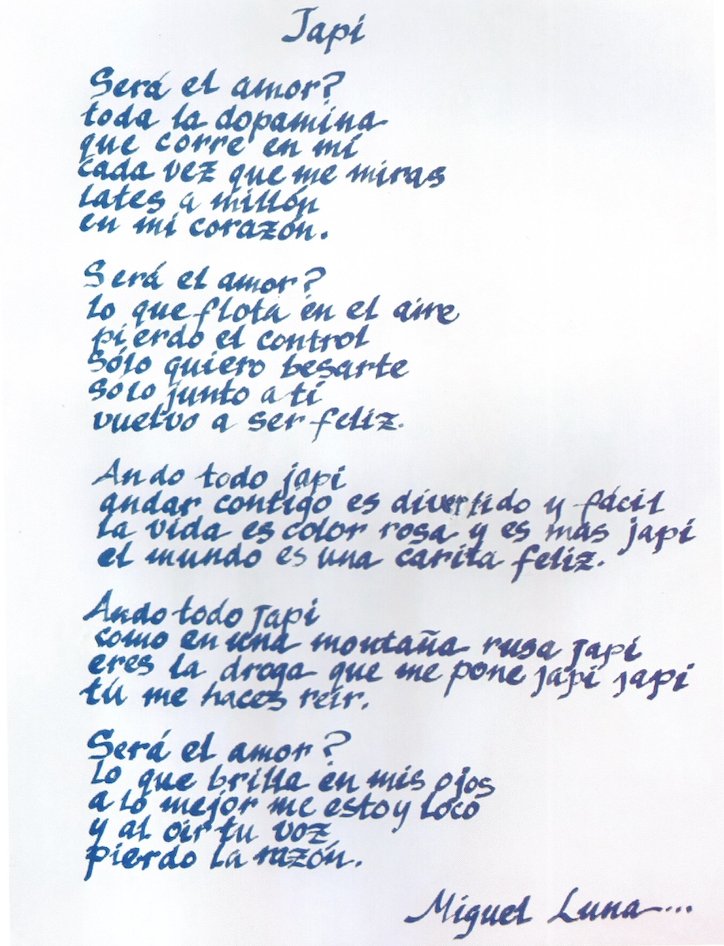 Japi
Será el amor?
toda la dopamina
que corre en mí
cada vez que me miras
lates a millón
en mi corazón.
Será el amor?
lo que flota en el aire
pierdo el control
sólo quiero besarte
sólo junto a ti
vuelvo a ser feliz.
Ando todo japi
andar contigo es divertido y fácil
la vida es color rosa y es más japi
el mundo es una carita feliz.
Ando todo japi
como en una montaña rusa japi
eres la droga que me pone japi japi
tú me haces reír.
Será el amor?
lo que brilla en mis ojos
a lo mejor me estoy loco
y al oir tu voz
pierdo la razón.
Miguel Luna...